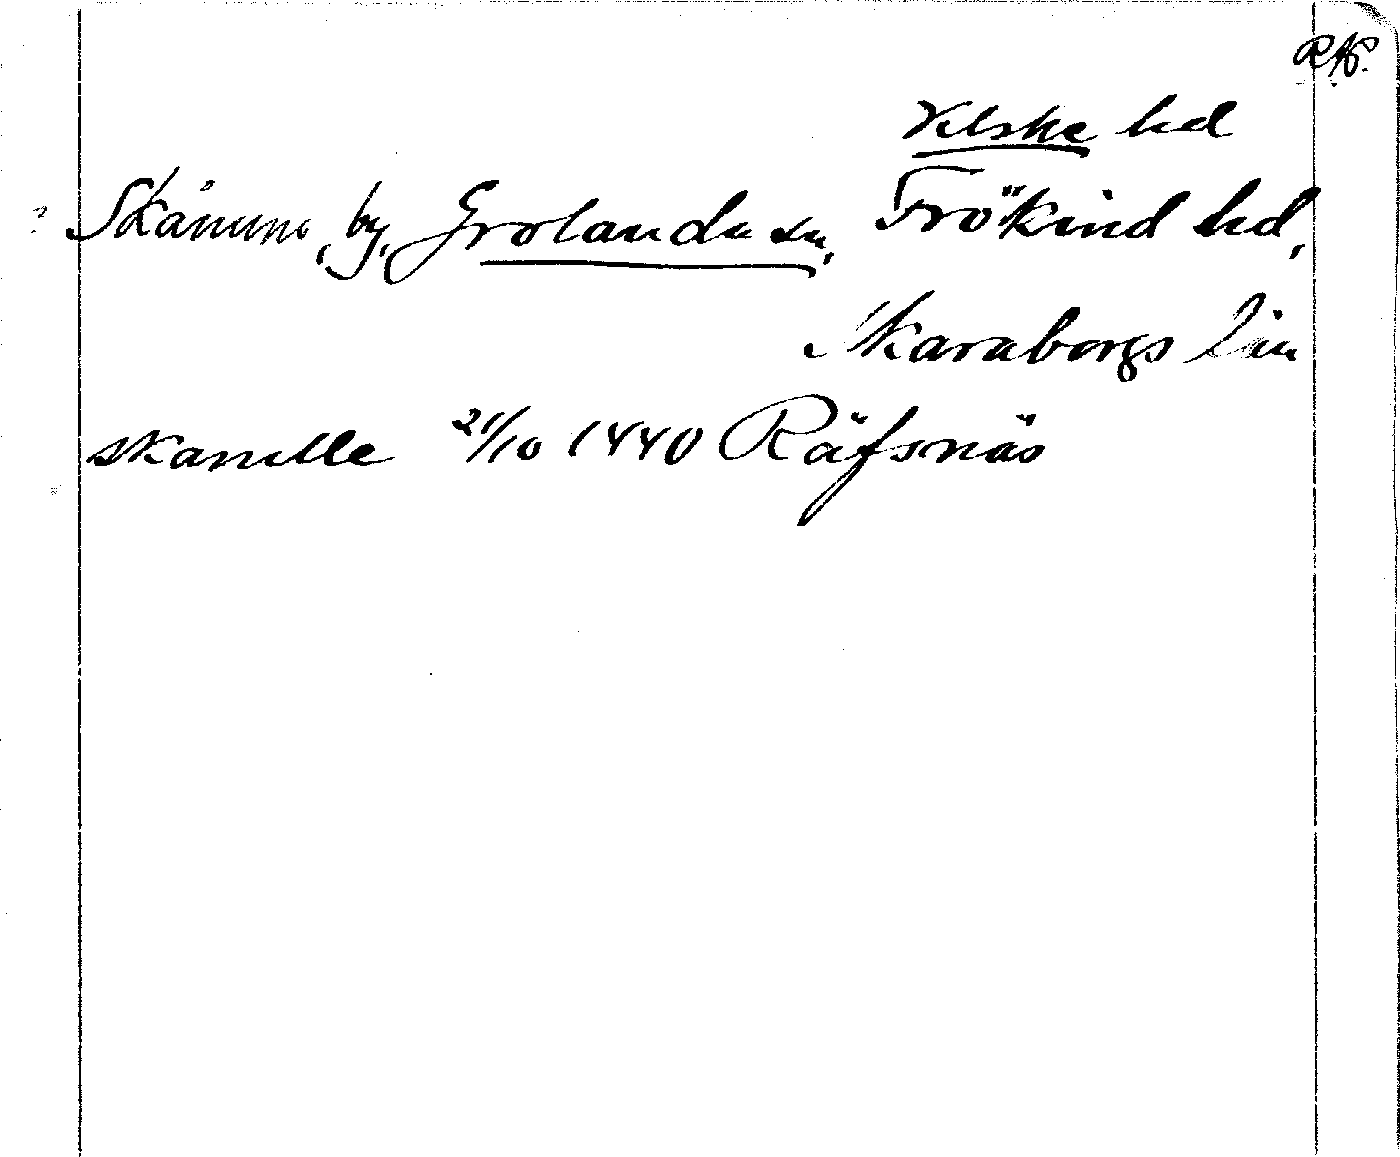 RAP.
Vilske hd
? Skånum, by, Grolanda sn, Frökind hd,
Skaraborgs län
skanulle 21/10 1440 Räfsnäs